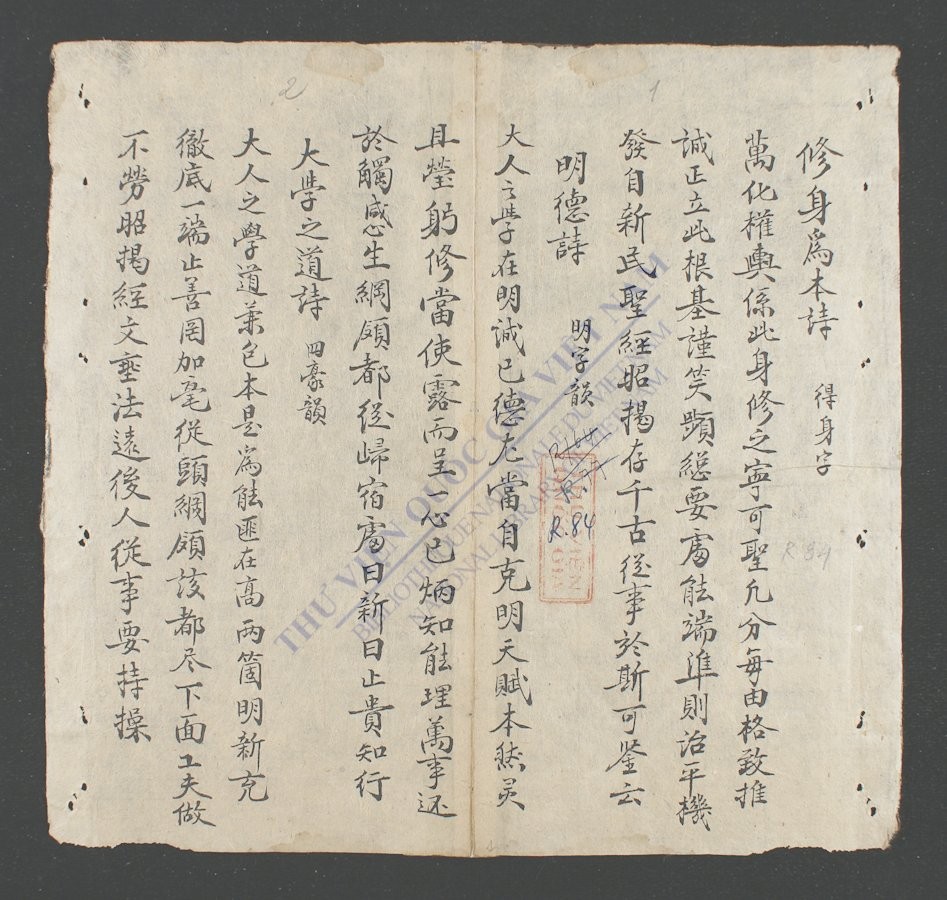 修身爲本詩 得身字
萬化權輿係此身修之寧可聖凢分每由格致推
誠正立此根基謹笑顰総要處能端準則治平機
發自新民聖經昭揭存千古從事於斯可鉴云
明德詩 明字韻
大人之學在明誠已德尤當自克明天賦本然灵
且瑩躬修當使露而呈一心已炳知能理萬事还
於觸感生綱領都從歸宿處曰新曰止貴知行
大學之道詩 四豪韻
大人之學道兼包本是爲能匪在高兩箇明新克
徹底一端止善罔加毫從頭綱領該都尽下面工夫做
不勞昭揭經文垂法遠後人從事要持操
1
2
R.84
R 84
THƯ VIỆN QUỐC GIA VIỆT NAM
BIBLIOTHÈQUE NATIONALE DU VIETNAM
NATIONAL LIBRARY OF VIETNAM